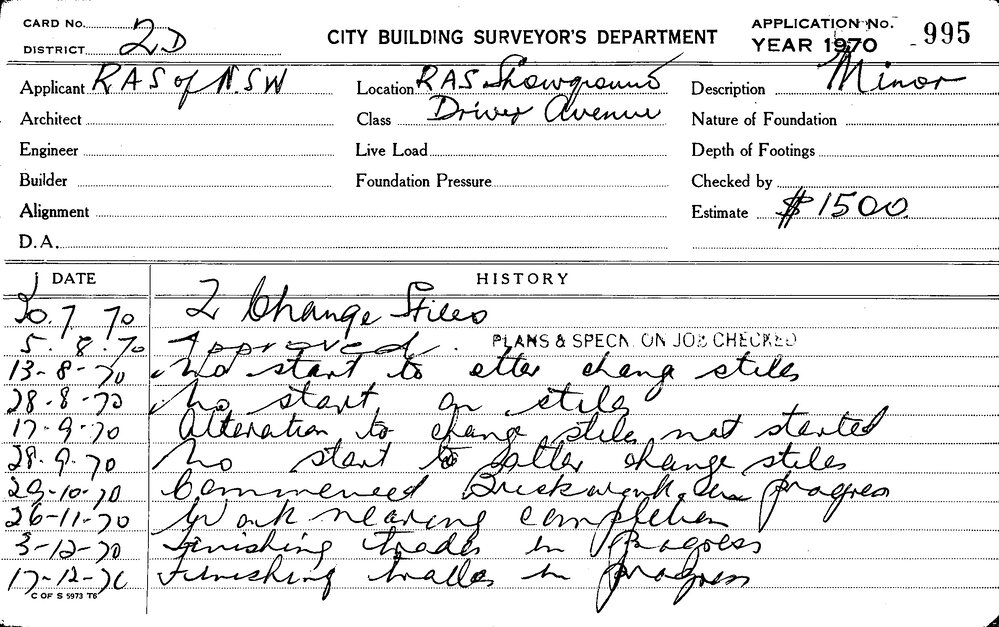 CARD No.
DISTRICT 2D
CITY BUILDING SURVEYOR'S DEPARTMENT
APPLICATION No. 995
YEAR 1970
Applicant RAS of N.SW
Location RAS Showground
Description Minor
Architect
Class Driver Avenue
Nature of Foundation
Engineer
Live Load
Depth of Footings
Builder
Foundation Pressure
Checked by
Alignment
Estimate $1500
D.A.
DATE HISTORY
30.7.70 2 Change Stiles
5.8.70 Approved. PLANS & SPECN. ON JOB CHECKED
13-8-70 No start to change stiles
28-8-70 No start on stiles
17-9-70 Alteration to change stiles not started
28.9.70 No start to alter change stiles
29-10-70 Commenced Brickwork in progress
26-11-70 Work nearing completion
3-12-70 Finishing trades in progress
17-12-70 Finishing trades in progress
C OF S 5973 T6